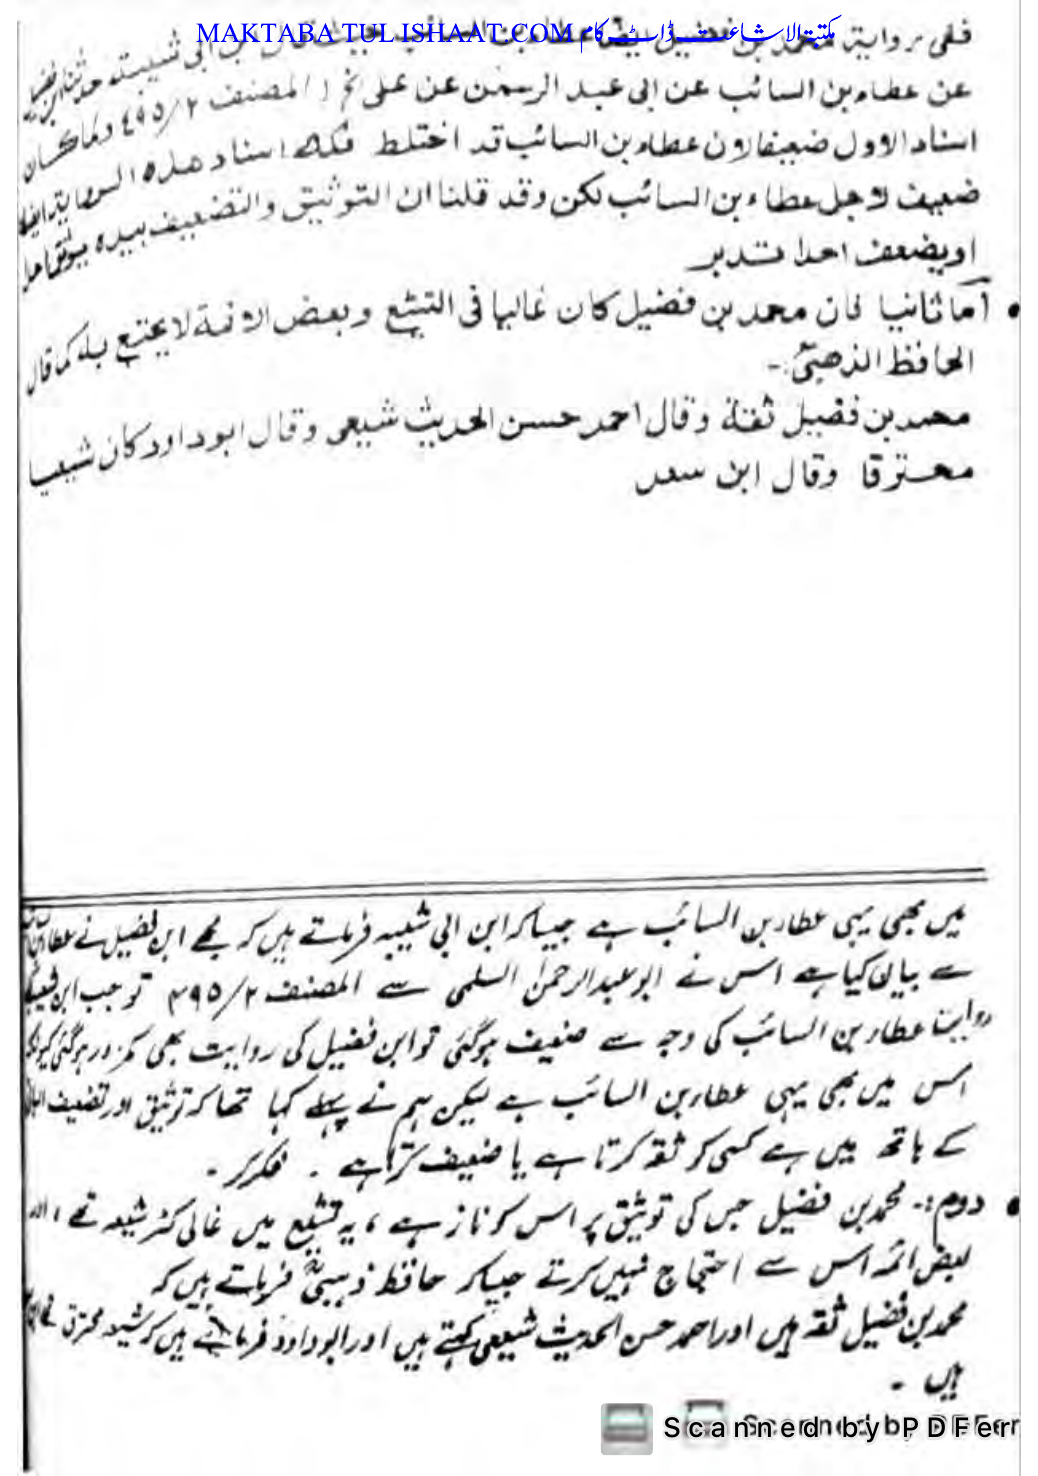 MAKTABA TUL ISHAAT.COM مکتبۃ الاشاعت ڈاٹ کام
ففی روایۃ محمد بن فضیل ابی شیبتہ حدثنا
عن عطاء بن السائب عن ابی عبد الرحمٰن عن علی المصنف ٢/٤٩٥ وکما کان
اسناد الاول ضعیفا لان عطاء بن السائب قد اختلط فکذا اسناد هذه الروایۃ ایضا
ضعیف لاجل عطاء بن السائب لکن وقد قلنا ان التوثیق والتضعیف بیده
او یضعف احدا تدبر
• اما ثانیا فان محمد بن فضیل کان غالیا فی التشیع وبعض الائمۃ لا یحتج به کما قال
الحافظ الذهبیؒ:-
محمد بن فضیل ثقۃ وقال احمد حسن الحدیث شیعی وقال ابو داود کان شیعیا
محترقا وقال ابن سعد
میں بھی یہی عطاء بن السائب ہے جیسا کہ ابن ابی شیبہ فرماتے ہیں کہ مجھے ابن فضیل نے عطاء
سے بیان کیا ہے اس نے ابو عبدالرحمٰن السلمی سے المصنف ٢/٣٩٥ تو جب ابن
روایت عطاء بن السائب کی وجہ سے ضعیف ہوگئی تو ابن فضیل کی روایت بھی کمزور ہوگئی کیونکہ
اس میں بھی یہی عطاء بن السائب ہے لیکن ہم نے پہلے کہا تھا کہ توثیق اور تضعیف
کے ہاتھ میں ہے کسی کو ثقہ کرتا ہے یا ضعیف کرتا ہے ۔ فکر کر ۔
• دوم:۔ محمد بن فضیل جس کی توثیق پر اس کو ناز ہے ، یہ تشیع میں غالی کٹر شیعہ تھے ، اللہ
بعض ائمہ اس سے احتجاج نہیں کرتے جیسا کہ حافظ ذہبیؒ فرماتے ہیں کہ
محمد بن فضیل ثقہ ہیں اور احمد حسن الحدیث شیعی کہتے ہیں اور ابوداود فرماتے ہیں کہ شیعہ محترق تھے
ہیں ۔
Scanned by PDFer